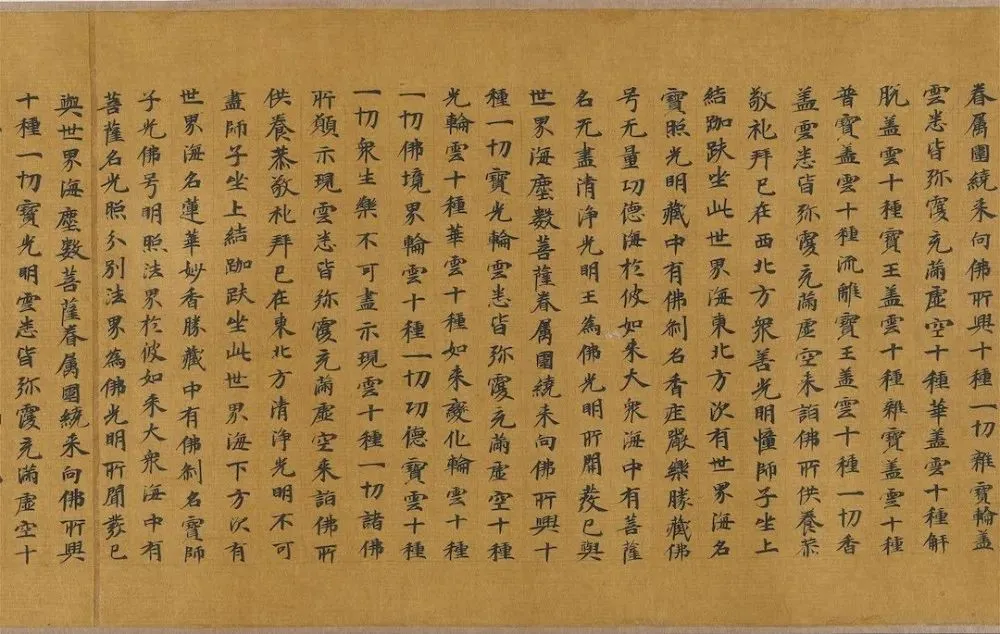 眷属圍繞来向佛所興十種一切雜寶輪盖
雲悉皆弥覆充滿虛空十種華盖雲十種解
脱盖雲十種寶王盖雲十種雜寶盖雲十種
普寶盖雲十種流離寶王盖雲十種一切香
盖雲悉皆弥覆充滿虛空来詣佛所供養恭
敬礼拜已在西北方衆善光明憧師子坐上
結跏趺坐此世界海東北方次有世界海名
寶照光明藏中有佛刹名香莊嚴樂勝藏佛
号无量功德海於彼如来大衆海中有菩薩
名无盡清浄光明王為佛光明所開發已與
世界海塵數菩薩眷属圍繞来向佛所興十
種一切寶光輪雲悉皆弥覆充滿虛空十種
光輪雲十種華雲十種如来變化輪雲十種
一切佛境界輪雲十種一切功德寶雲十種
一切衆生樂不可盡示現雲十種一切諸佛
所願示現雲悉皆弥覆充滿虛空来詣佛所
供養恭敬礼拜已在東北方清浄光明不可
盡師子坐上結跏趺坐此世界海下方次有
世界海名蓮華妙香勝藏中有佛刹名寶師
子光佛号明照法界於彼如来大衆海中有
菩薩名光照分別法界為佛光明所開發已
與世界海塵數菩薩眷属圍繞来向佛所興
十種一切寶光明雲悉皆弥覆充滿虛空十